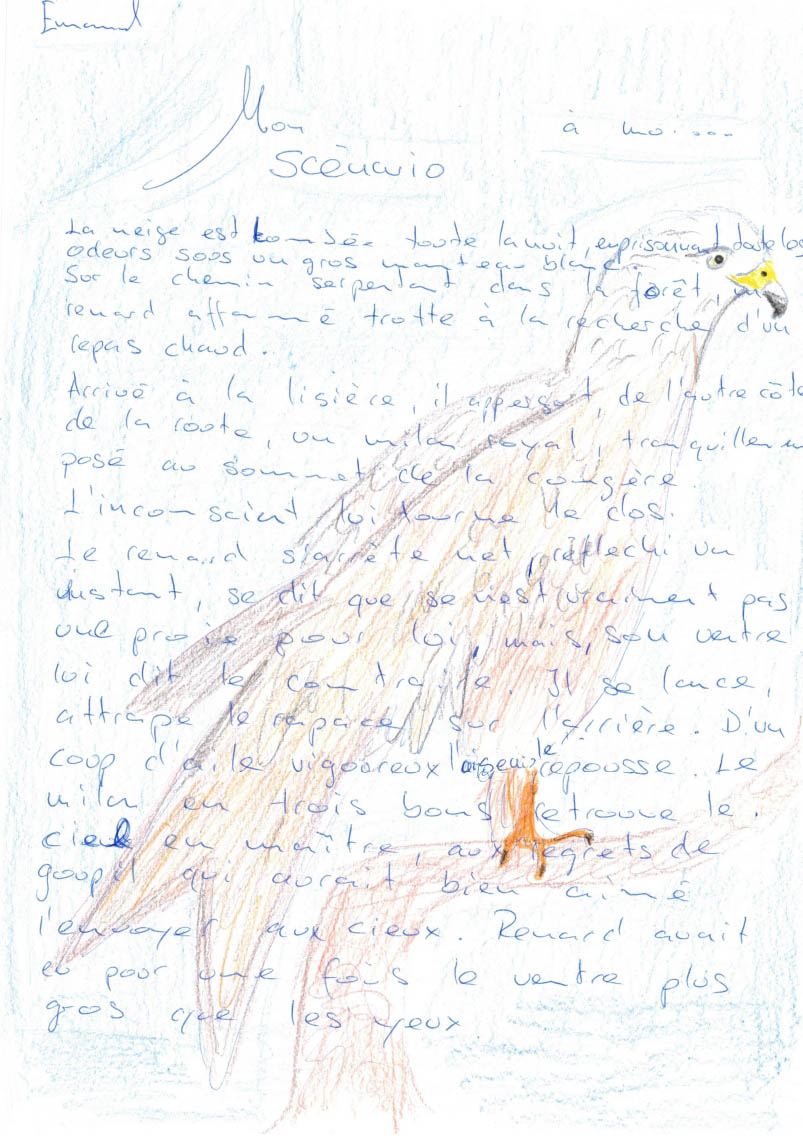 Mon
à moi....
Scénario
La neige est tombée toute la nuit, emprisonnant toute los
odeurs sous un gros manteau blanc.
Sur le chemin serpentant dans la forêt, un
renard affammé trotte à la recherche d'un
repas chaud.
Arrivé à la lisière, il apperçoit, de l'autre côté
de la route, un milan royal, tranquillem
posé au sommet de la congère.
L'inconscient lui tourne le dos.
Le renard s'arrête net, réflechi un
instant, se dit que se n'est vraiment pas
une proie pour lui, mais, son ventre
lui dit le contraire. Il se lance,
attrape le rapace sur l'arrière. D'un
coup d'aile vigoureux l'oiseau le repousse. Le
milan en trois bons retrouve le
ciel en maître, aux regrets de
goupil qui aurait bien aimé
l'envoyer aux cieux. Renard avait
eu pour une fois le ventre plus
gros que les yeux